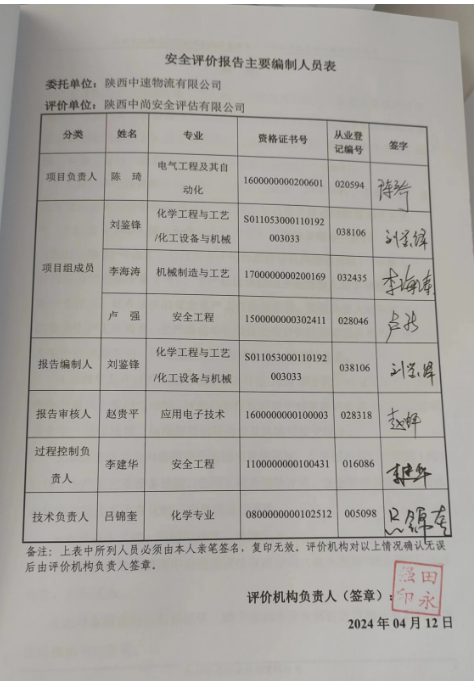 安全评价报告主要编制人员表
委托单位：陕西中速物流有限公司
评价单位：陕西中尚安全评估有限公司
分类 姓名 专业 资格证书号 从业登记编号 签字
项目负责人 陈琦 电气工程及其自动化 1600000000200601 020594 陈琦
项目组成员 刘鉴锋 化学工程与工艺/化工设备与机械 S011053000110192003033 038106 刘鉴锋
李海涛 机械制造与工艺 1700000000200169 032435 李海涛
卢强 安全工程 1500000000302411 028046 卢强
报告编制人 刘鉴锋 化学工程与工艺/化工设备与机械 S011053000110192003033 038106 刘鉴锋
报告审核人 赵贵平 应用电子技术 1600000000100003 028318
过程控制负责人 李建华 安全工程 1100000000100431 016086 李建华
技术负责人 吕锦奎 化学专业 0800000000102512 005098 吕锦奎
备注：上表中所列人员必须由本人亲笔签名，复印无效。评价机构对以上情况确认无误
后由评价机构负责人签章。
评价机构负责人（签章）：
田永强印
2024年04月12日